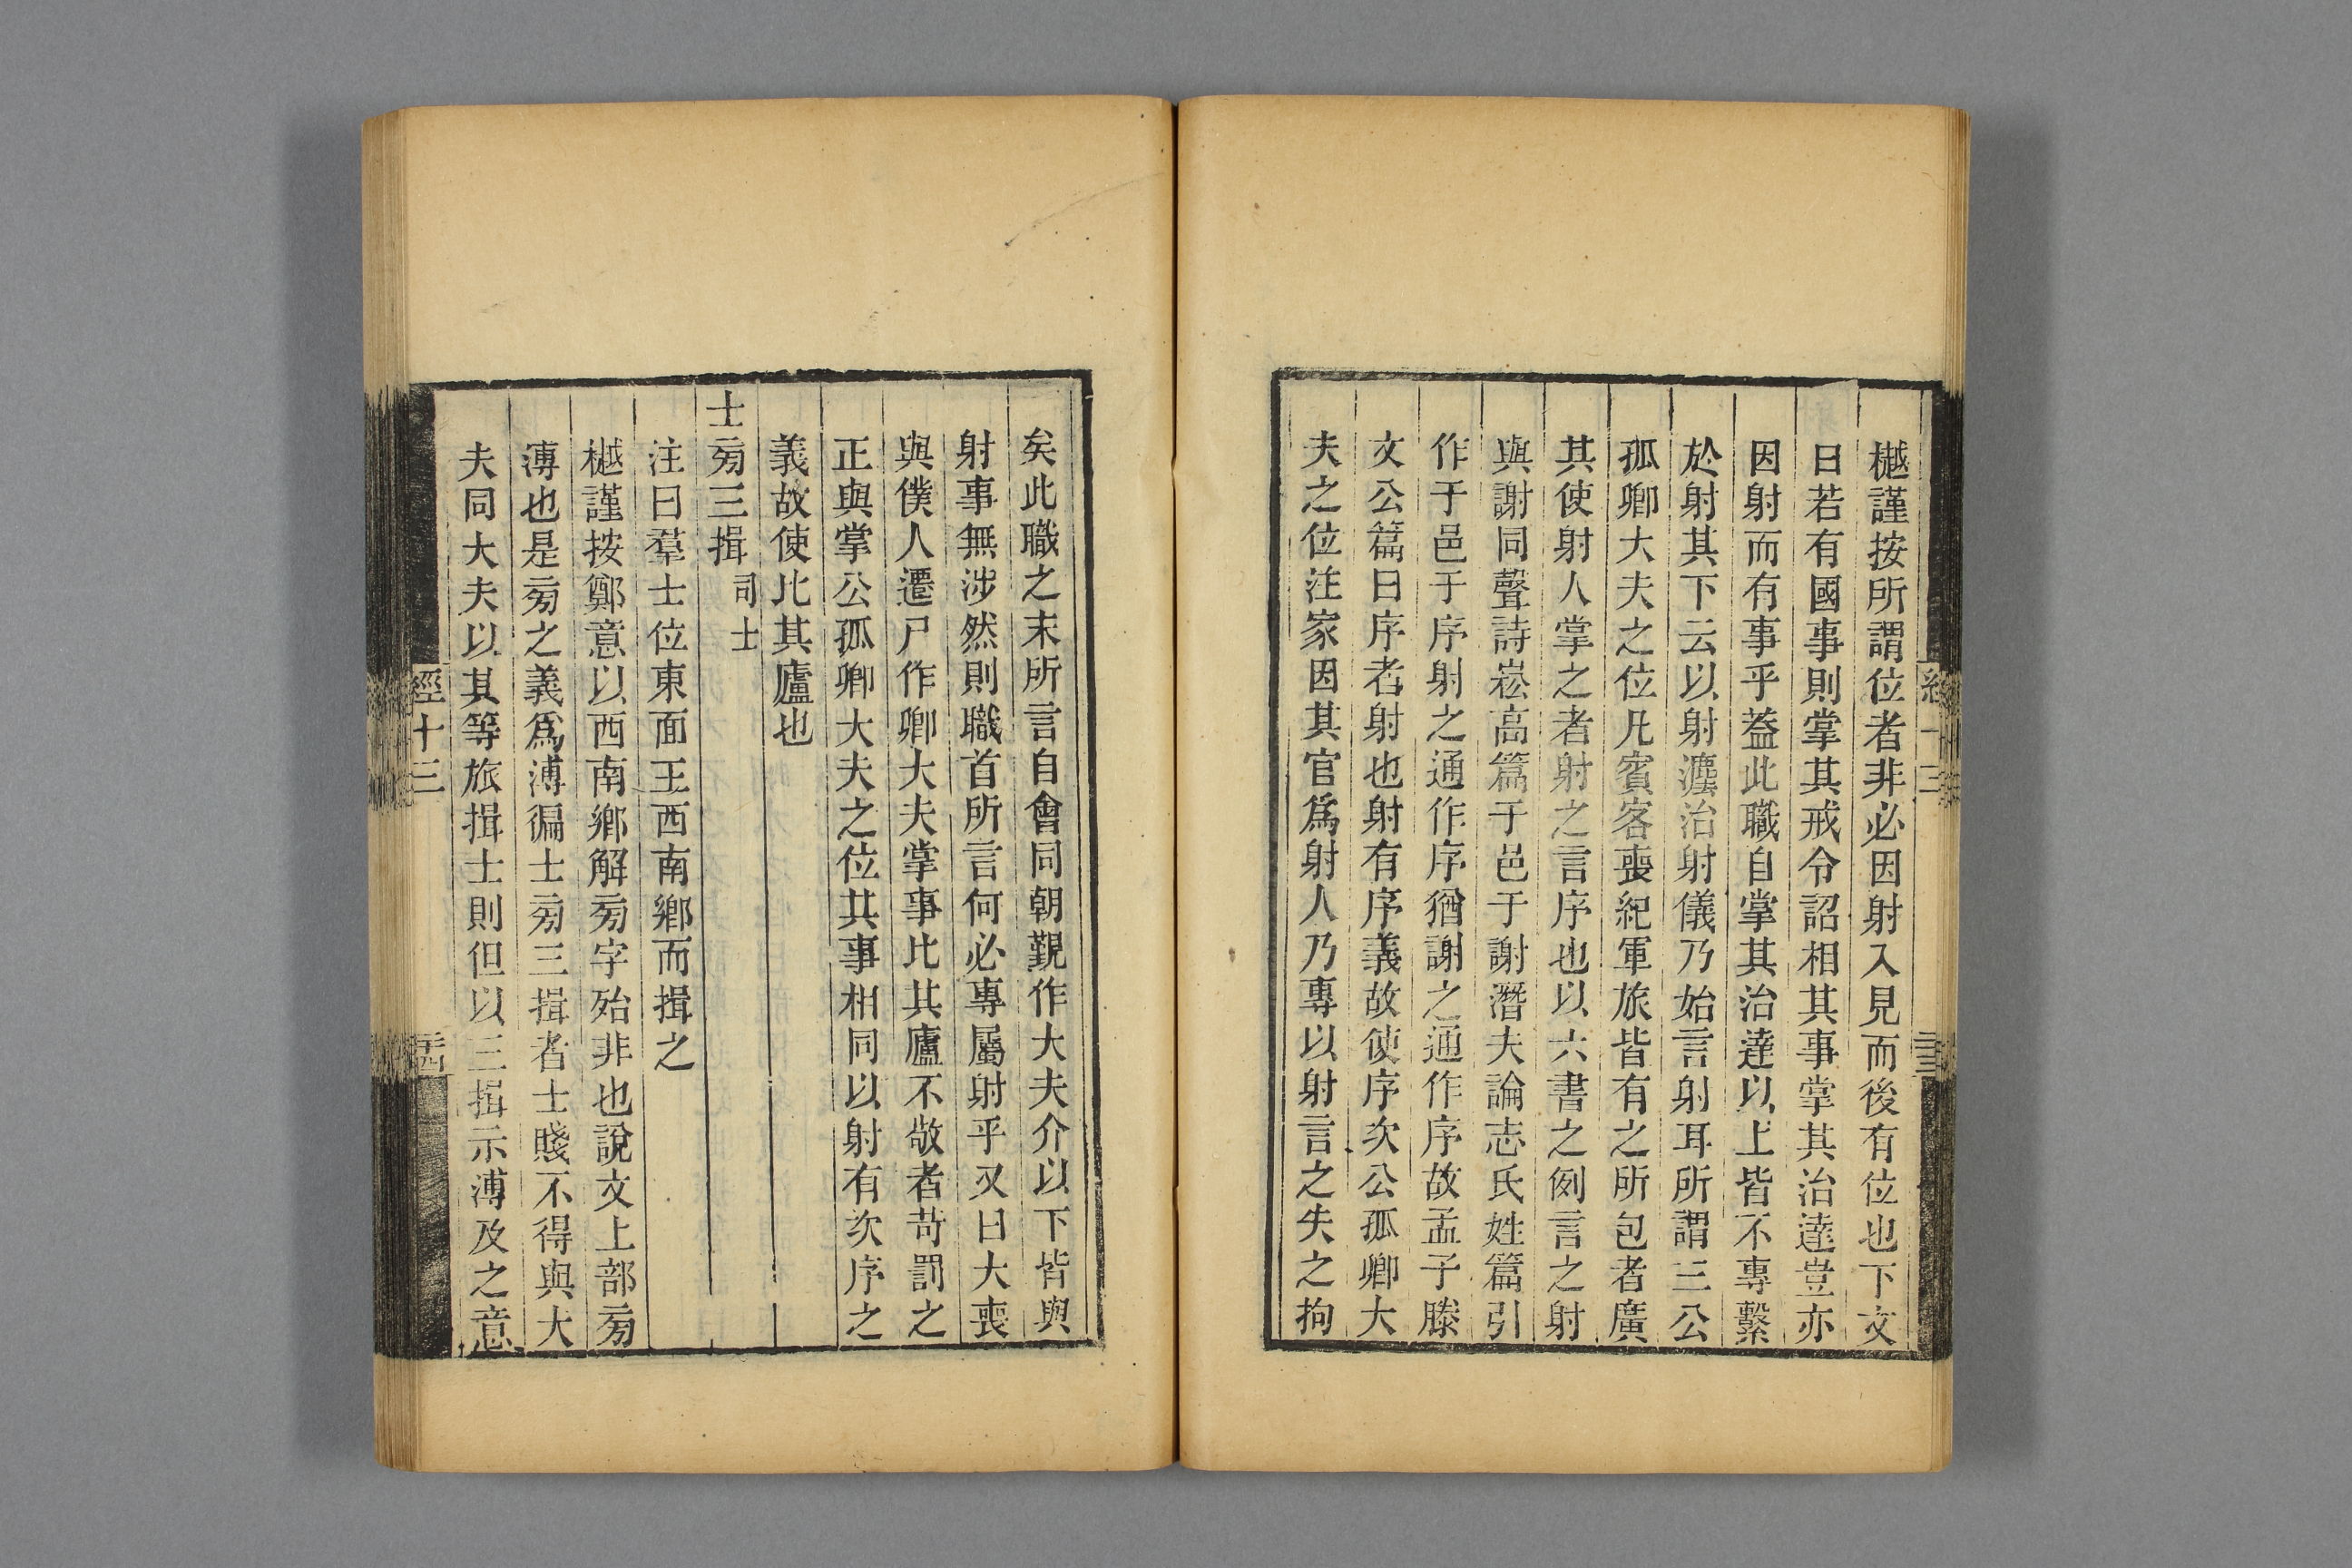 樾謹按所謂位者非必因射入見而後有位也下文
曰若有國事則掌其戒令詔相其事掌其治達豈亦
因射而有事乎蓋此職自掌其治達以上皆不專繫
於射其下云以射灋治射儀乃始言射耳所謂三公
孤卿大夫之位凡賓客喪紀軍旅皆有之所包者廣
其使射人掌之者射之言序也以六書之例言之射
與謝同聲詩崧高篇于邑于謝潛夫論志氏姓篇引
作于邑于序射之通作序猶謝之通作序故孟子滕
文公篇曰序者射也射有序義故使序次公孤卿大
夫之位注家因其官爲射人乃專以射言之失之拘
矣此職之末所言自會同朝覲作大夫介以下皆與
射事無涉然則職首所言何必專屬射乎又曰大喪
與僕人遷尸作卿大夫掌事比其廬不敬者苛罰之
正與掌公孤卿大夫之位其事相同以射有次序之
義故使比其廬也
士㫄三揖 司士
注曰羣士位東面王西南鄉而揖之
樾謹按鄭意以西南鄉解㫄字殆非也說文上部㫄
溥也是㫄之義爲溥徧士㫄三揖者士賤不得與大
夫同大夫以其等旅揖士則但以三揖示溥及之意
經十三